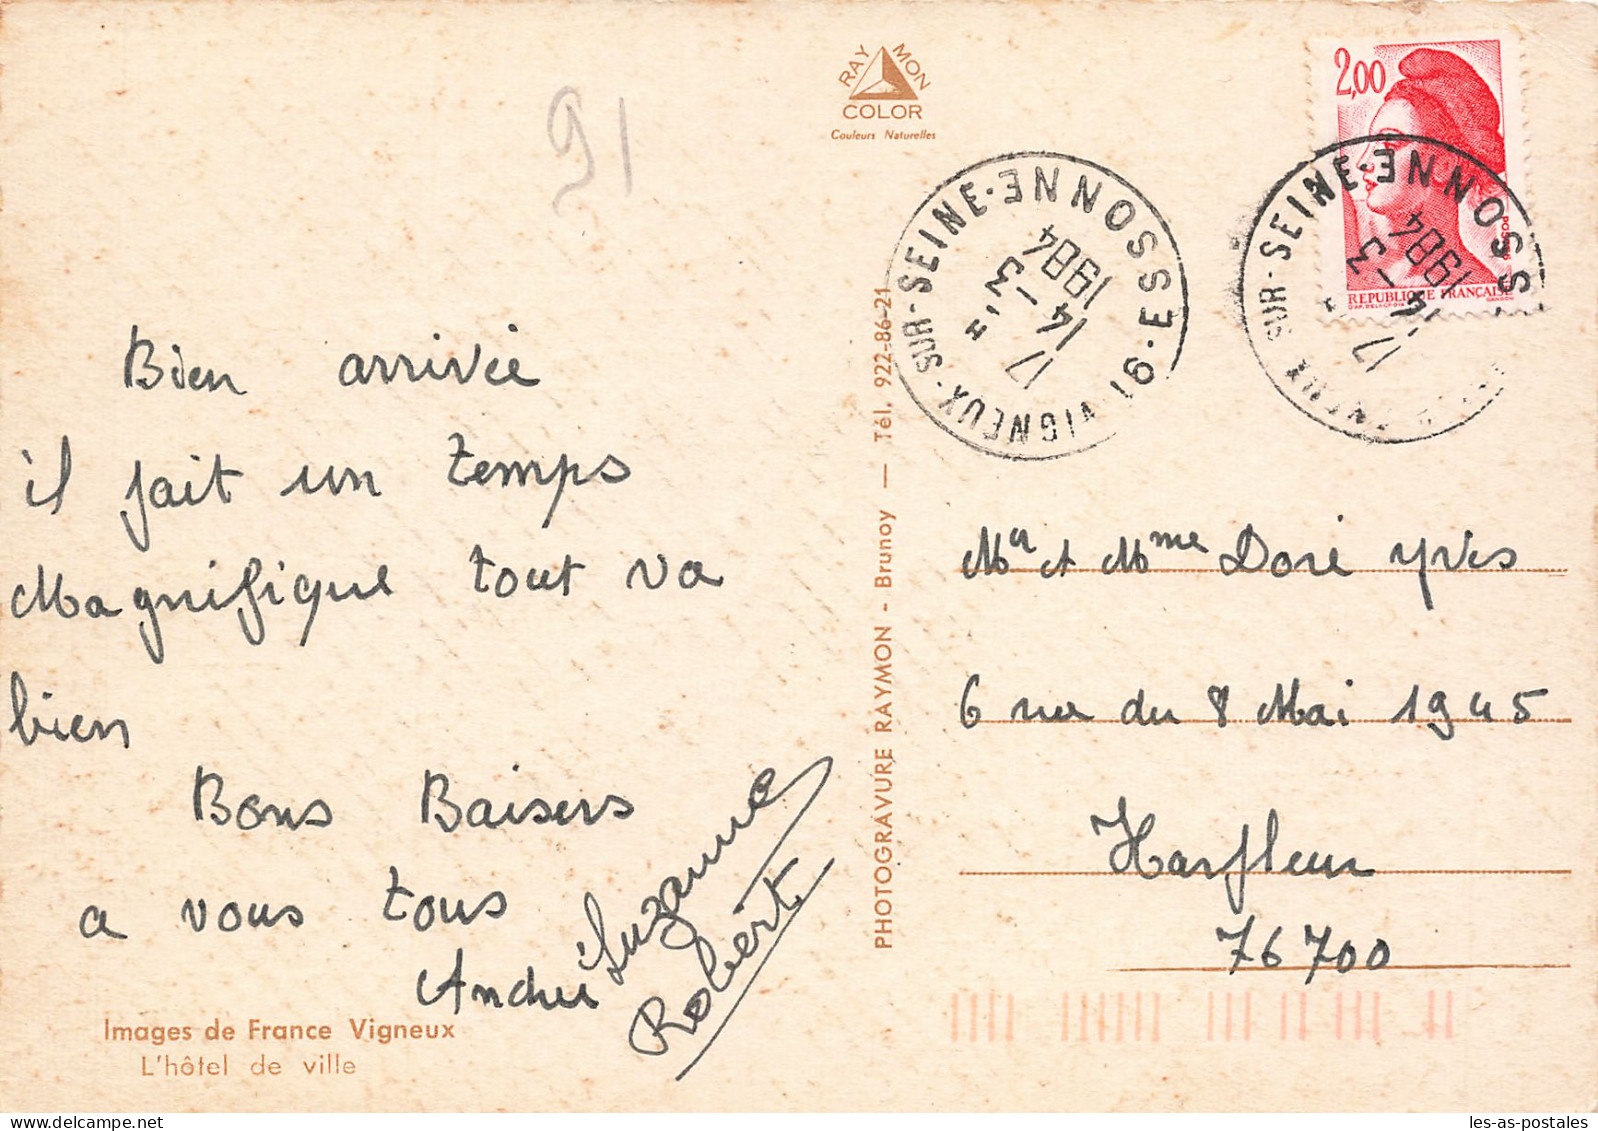 91
RAYMON
COLOR
Couleurs Naturelles
2,00
POSTES
REPUBLIQUE FRANÇAISE
VIGNEUX-SUR-SEINE·ESSONNE·91
17H
14-3
1984
SUR-SEINE·ESSONNE
17H
14-3
1984
Bien arrivée
il fait un temps
Magnifique tout va
bien
Bons Baisers
a vous tous
André Suzanne
Robert
Images de France Vigneux
L'hôtel de ville
PHOTOGRAVURE RAYMON - Brunoy — Tél. 922-86-21
Mr et Mme Doré Yves
6 rue du 8 Mai 1945
Harfleur
76700
les-as-postales